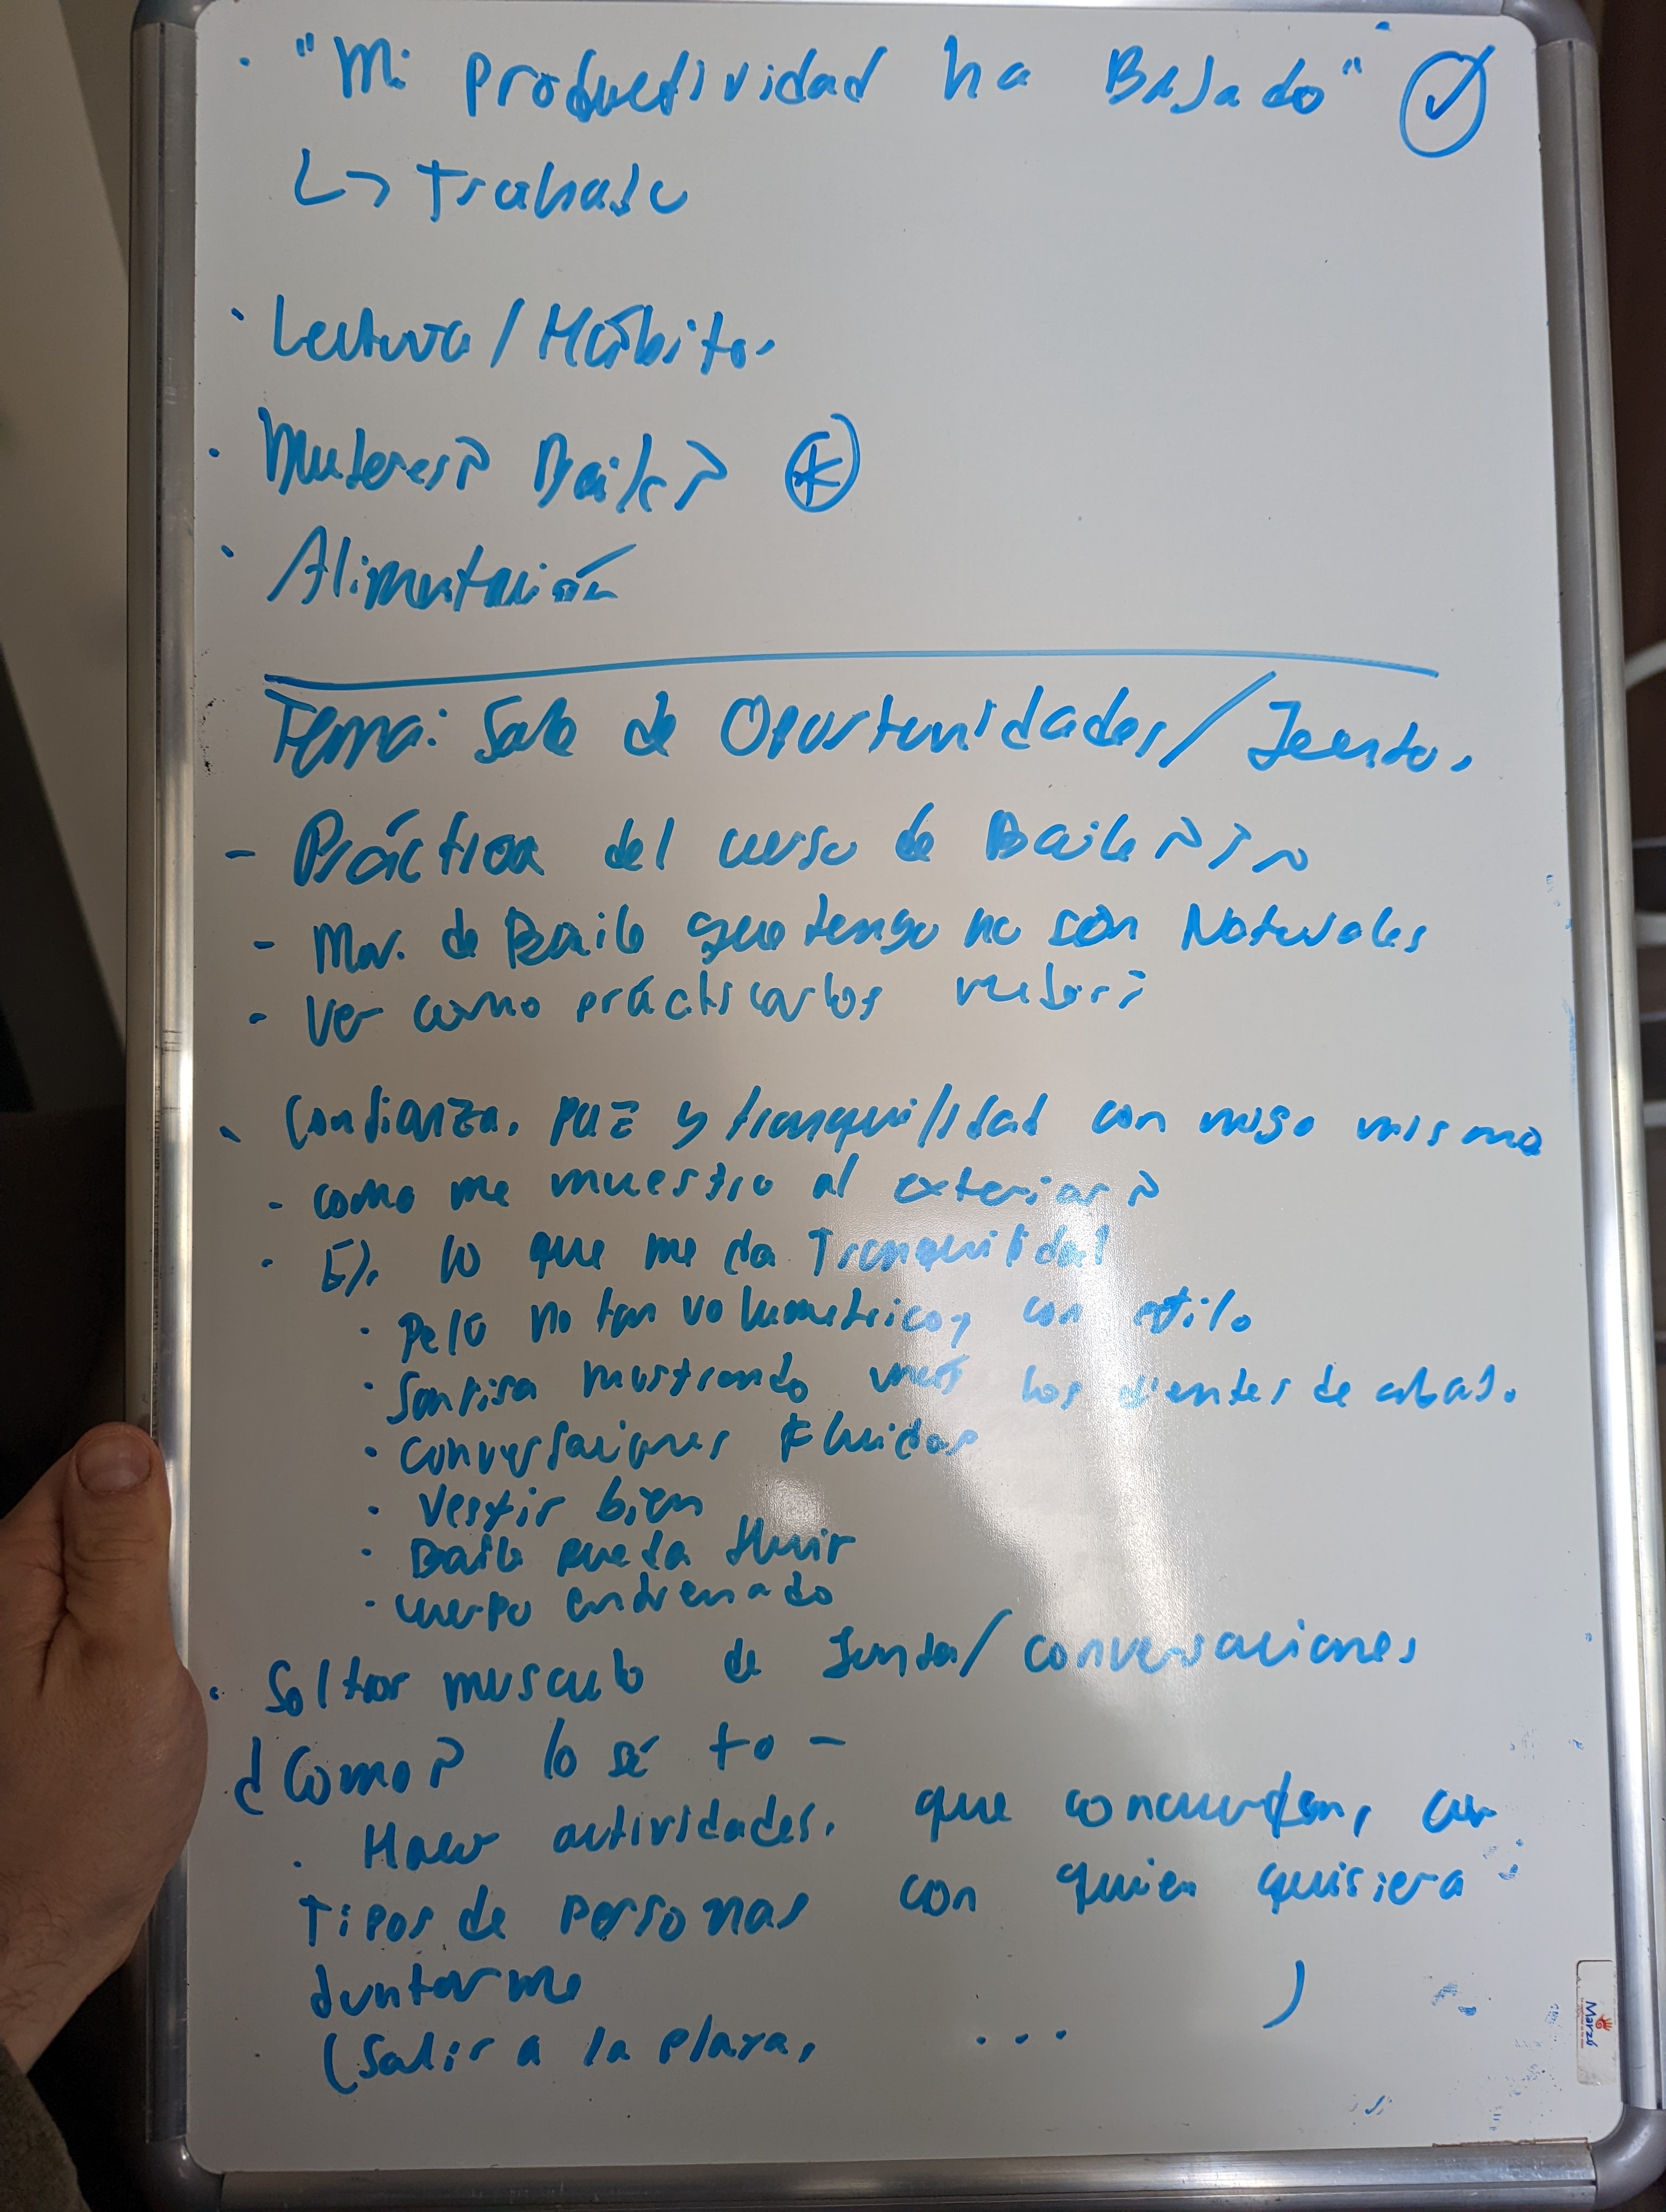 · "Mi productividad ha Bajado"
↳ trabajo
· Lectura / Hábitos
· Mujeres? Baile?
· Alimentación
Tema: de Oportunidades /
- Práctica del curso de Baile ???
- Mov. de Baile que tengo no son Naturales
- Ver como prácticarlos mejor?
· Confianza, paz y tranquilidad con migo mismo
- como me muestro al exterior?
· Ej. lo que me da Tranquilidad
· Pelo no tan volumetrico, con estilo
· Sonrisa mostrando más los dientes de abaj.
· Conversaciones Fluidas
· Vestir bien
· Baile pueda fluir
· cuerpo entrenado
· Soltar musculo de Junta / conversaciones
¿Como? lo sé to -
· Hacer actividades, que concuerden, con
Tipos de personas con quien quisiera
Juntarme
(Salir a la playa, ... )
Marzú